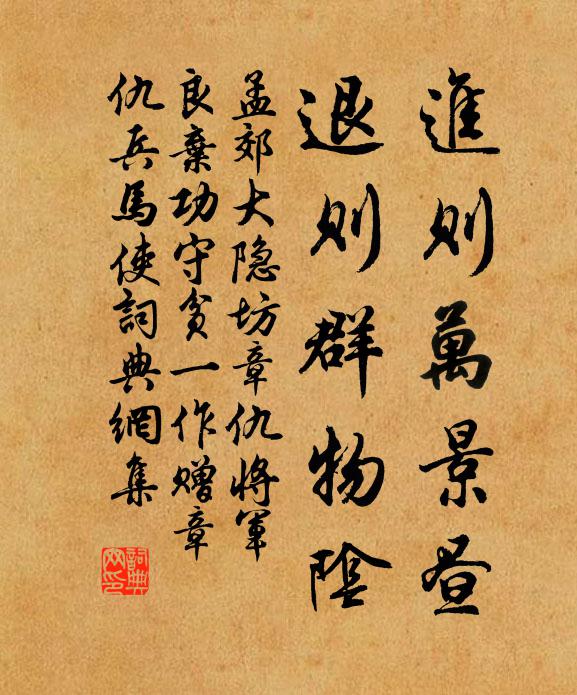 進則萬景晝
退則群物陰
孟郊大隐坊章仇將軍
良棄功守貧一作贈章
仇兵馬使詞典網集
詞典
网印